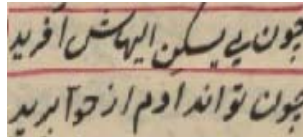 چون پی یسکن الیهاش آفرید
چون تواند آدم از حوا برید